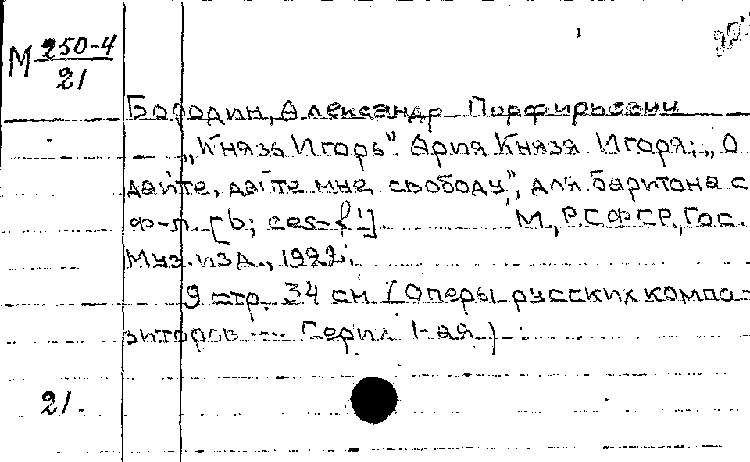 М 250-4
21
Бородин, Александр Порфирьевич
„Князь Игорь". Ария Князя Игоря: „О
дайте, дайте мне свободу", для баритона с
ф-п. [b; ces-f¹] М., РСФСР, Гос.
Муз. изд., 1922.
9 стр. 34 см (Оперы русских компо-
зиторов — Серия 1-ая)
21.